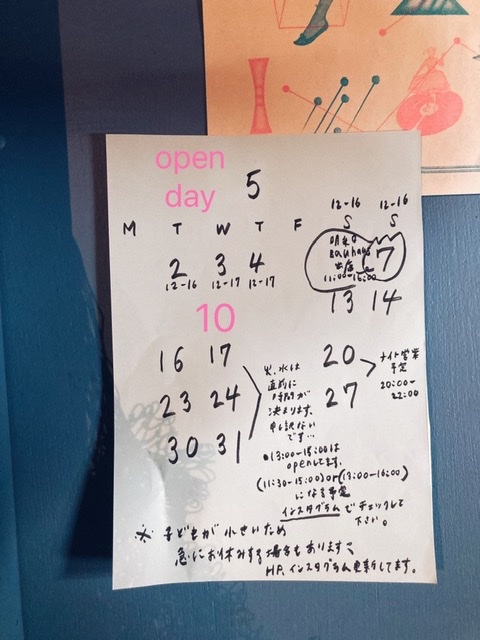 open
day 5
12-16 12-16
M T W T F S S
2 3 4
12-16 12-17 12-17
Bauhaus
出店
11:00-16:00
7
13 14
10
16 17
23 24
30 31
20
27
ナイト営業
予定
20:00-
22:00
火、水は
直前に
時間が
決まります。
申し訳ない
です…
●13:00-15:00は
openしてます。
(11:30-15:00)or(13:00-16:00)
になる予定
インスタグラムでチェックして
下さい。
※ 子どもが小さいため
急にお休みする場合もあります
HP、インスタグラム更新してます。